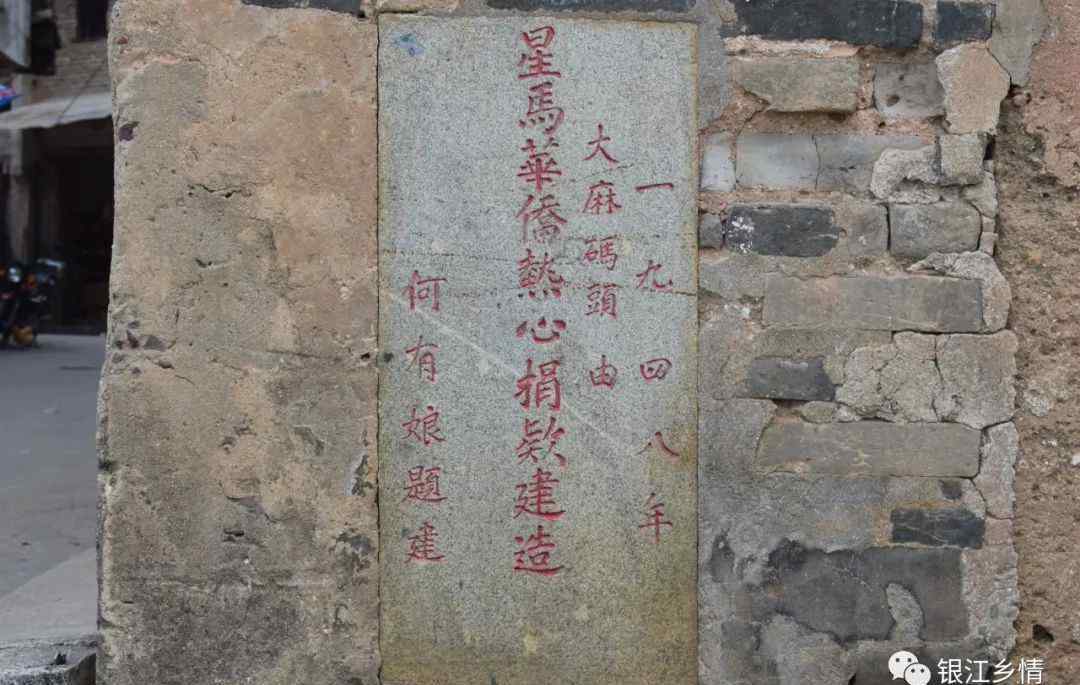 一九四八年
大麻碼頭由
星馬華僑熱心捐欵建造
何有娘題建
银江乡情